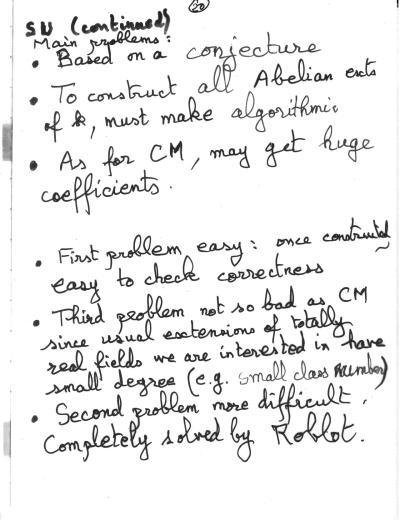 20
SU (continued)
Main problems:
• Based on a conjecture
• To construct all Abelian exts
of k, must make algorithmic
• As for CM, may get huge
coefficients.
• First problem easy: once constructed
easy to check correctness
• Third problem not so bad as CM
since usual extensions of totally
real fields we are interested in have
small degree (e.g. small class number)
• Second problem more difficult.
Completely solved by Roblot.